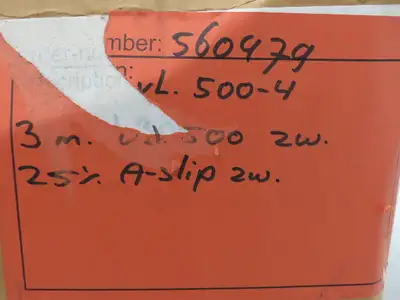 mber: 560479
vL. 500-4
3 m. 500 zw.
25% A-slip zw.